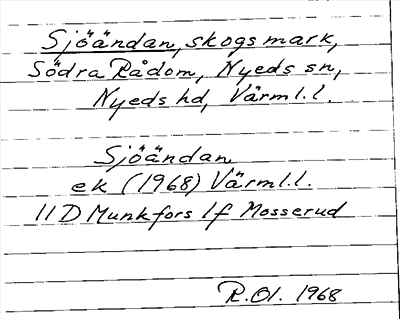 Sjöändan, skogsmark,
Södra Rådom, Nyeds sn,
Nyeds hd, Värml.l.
Sjöändan
ek (1968) Värml.l.
11D Munkfors 1f Mosserud
R.Ol. 1968